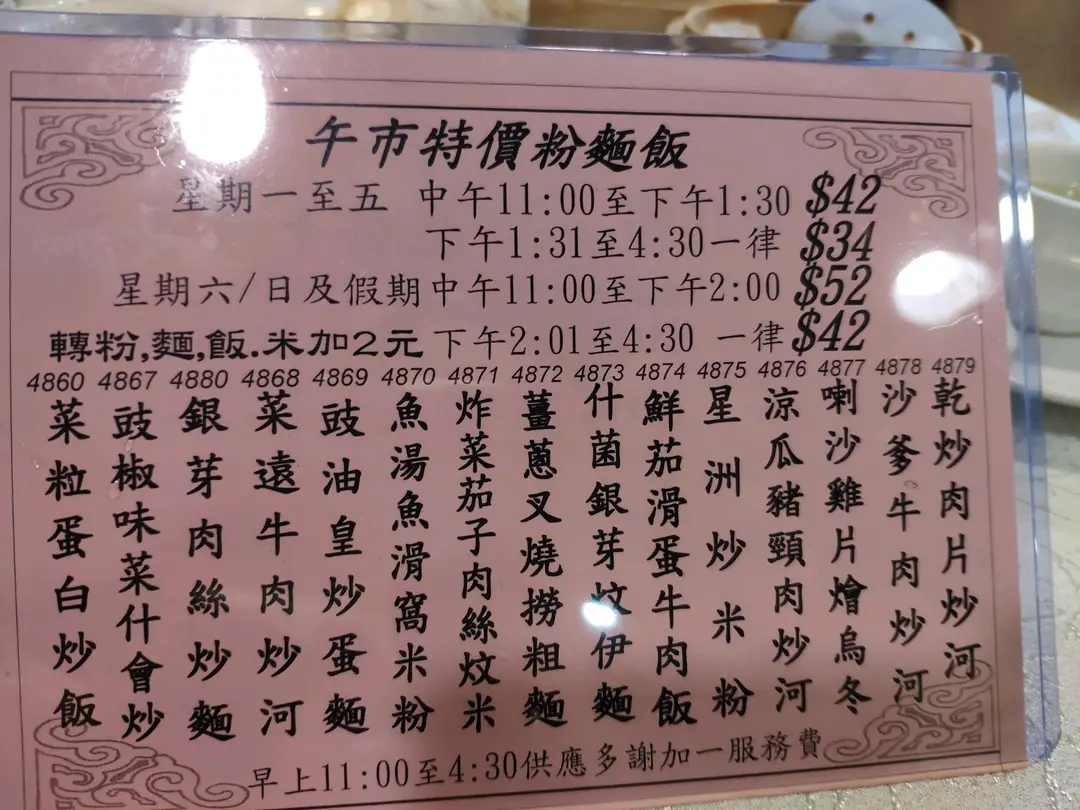 午市特價粉麵飯
星期一至五 中午11:00至下午1:30 $42
下午1:31至4:30一律 $34
星期六/日及假期中午11:00至下午2:00 $52
轉粉,麵,飯.米加2元 下午2:01至4:30 一律 $42
4860 4867 4880 4868 4869 4870 4871 4872 4873 4874 4875 4876 4877 4878 4879
菜粒蛋白炒飯
豉椒味菜什會炒
銀芽肉絲炒麵
菜遠牛肉炒河
豉油皇炒蛋麵
魚湯魚滑窩米粉
炸菜茄子肉絲炆米
薑蔥叉燒撈粗麵
什菌銀芽炆伊麵
鮮茄滑蛋牛肉飯
星洲炒米粉
涼瓜豬頸肉炒河
喇沙雞片燴烏冬
沙爹牛肉炒河
乾炒肉片炒河
早上11:00至4:30供應多謝加一服務費